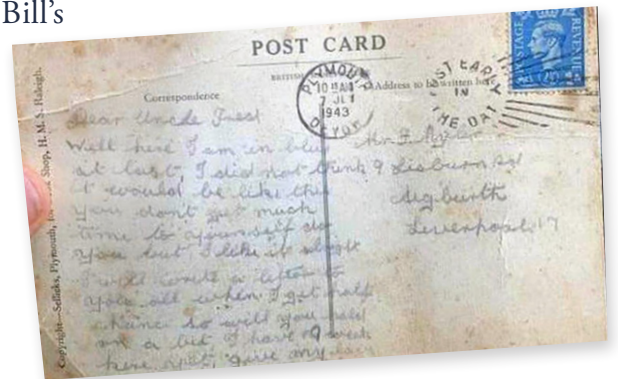 Bill's
POST CARD
BRITISH
Correspondence
Address to be written here
PLYMOUTH
10 AM
7 JL
1943
DEVON
POST EARLY
IN
THE DAY
POSTAGE
REVENUE
Copyright—Sellicks, Plymouth, Shop, H. M. S. Raleigh.
Dear Uncle Fred
Well here I am in blue
at last, I did not think
it would be like this
you don't get much
time to yourself do
you but I like it alright
I will write a letter to
you all when I get half
chance so will you
me a bit I have 9 week
here yet, give my love
Mr F.
9 Lisburn Rd
Aigburth
Liverpool 17